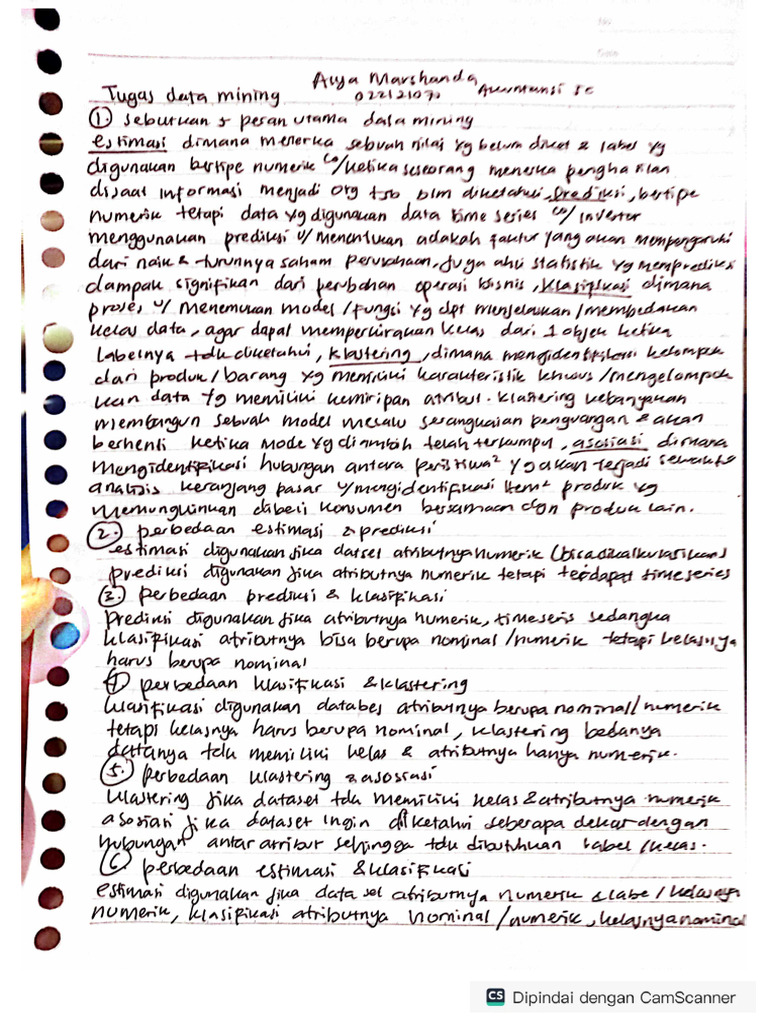 Alya Marshanda
Tugas data mining 022121070 Akuntansi 5C
1. sebutkan 5 peran utama data mining
estimasi dimana menerka sebuah nilai yg belum diket & label yg
digunakan bertipe numerik co/ketika seseorang menerka penghasilan
disaat informasi menjadi org tsb blm diketahui, prediksi, bertipe
numerik tetapi data yg digunakan data time series co/ investor
menggunakan prediksi u/ menentukan adakah faktor yang akan mempengaruhi
dari naik & turunnya saham perusahaan, juga ahli statistik yg memprediksi
dampak signifikan dari perubahan operasi bisnis, klasifikasi dimana
proses u/ menemukan model/fungsi yg dpt menjelaskan/membedakan
kelas data, agar dapat memperkirakan kelas dari 1 objek ketika
labelnya tdk diketahui, klastering, dimana mengidentifikasi kelompok
dari produk/barang yg memiliki karakteristik khusus/mengelompok
kan data yg memiliki kemiripan atribut. klastering kebanyakan
membangun sebuah model melalui serangkaian pengulangan & akan
berhenti ketika mode yg ditambah telah terkumpul, asosiasi dimana
mengidentifikasi hubungan antara peristiwa² yg akan terjadi sewaktu
analisis keranjang pasar u/ mengidentifikasi item² produk yg
memungkinkan dibeli konsumen bersamaan dgn produk lain.
2. perbedaan estimasi & prediksi
estimasi digunakan jika datset atributnya numerik (bisa dikalkulasikan)
prediksi digunakan jika atributnya numerik tetapi terdapat timeseries
3. perbedaan prediksi & klasifikasi
Prediksi digunakan jika atributnya numerik, timeseris sedangka
klasifikasi atributnya bisa berupa nominal/numerik tetapi kelasnya
harus berupa nominal
4 perbedaan klasifikasi & klastering
klasifikasi digunakan databes atributnya berupa nominal/numerik
tetapi kelasnya harus berupa nominal, klastering bedanya
datanya tdk memiliki kelas & atributnya hanya numerik.
5. perbedaan klastering & asosiasi
klastering jika dataset tdk memiliki kelas & atributnya numerik
asosiasi jika dataset ingin diketahui seberapa dekat dengan
hubungan antar atribut sehingga tdk dibutuhkan label/kelas.
6. perbedaan estimasi & klasifikasi
estimasi digunakan jika data set atributnya numerik & labe/kelasnya
numerik, klasifikasi atributnya nominal/numerik, kelasnya nominal
CS Dipindai dengan CamScanner